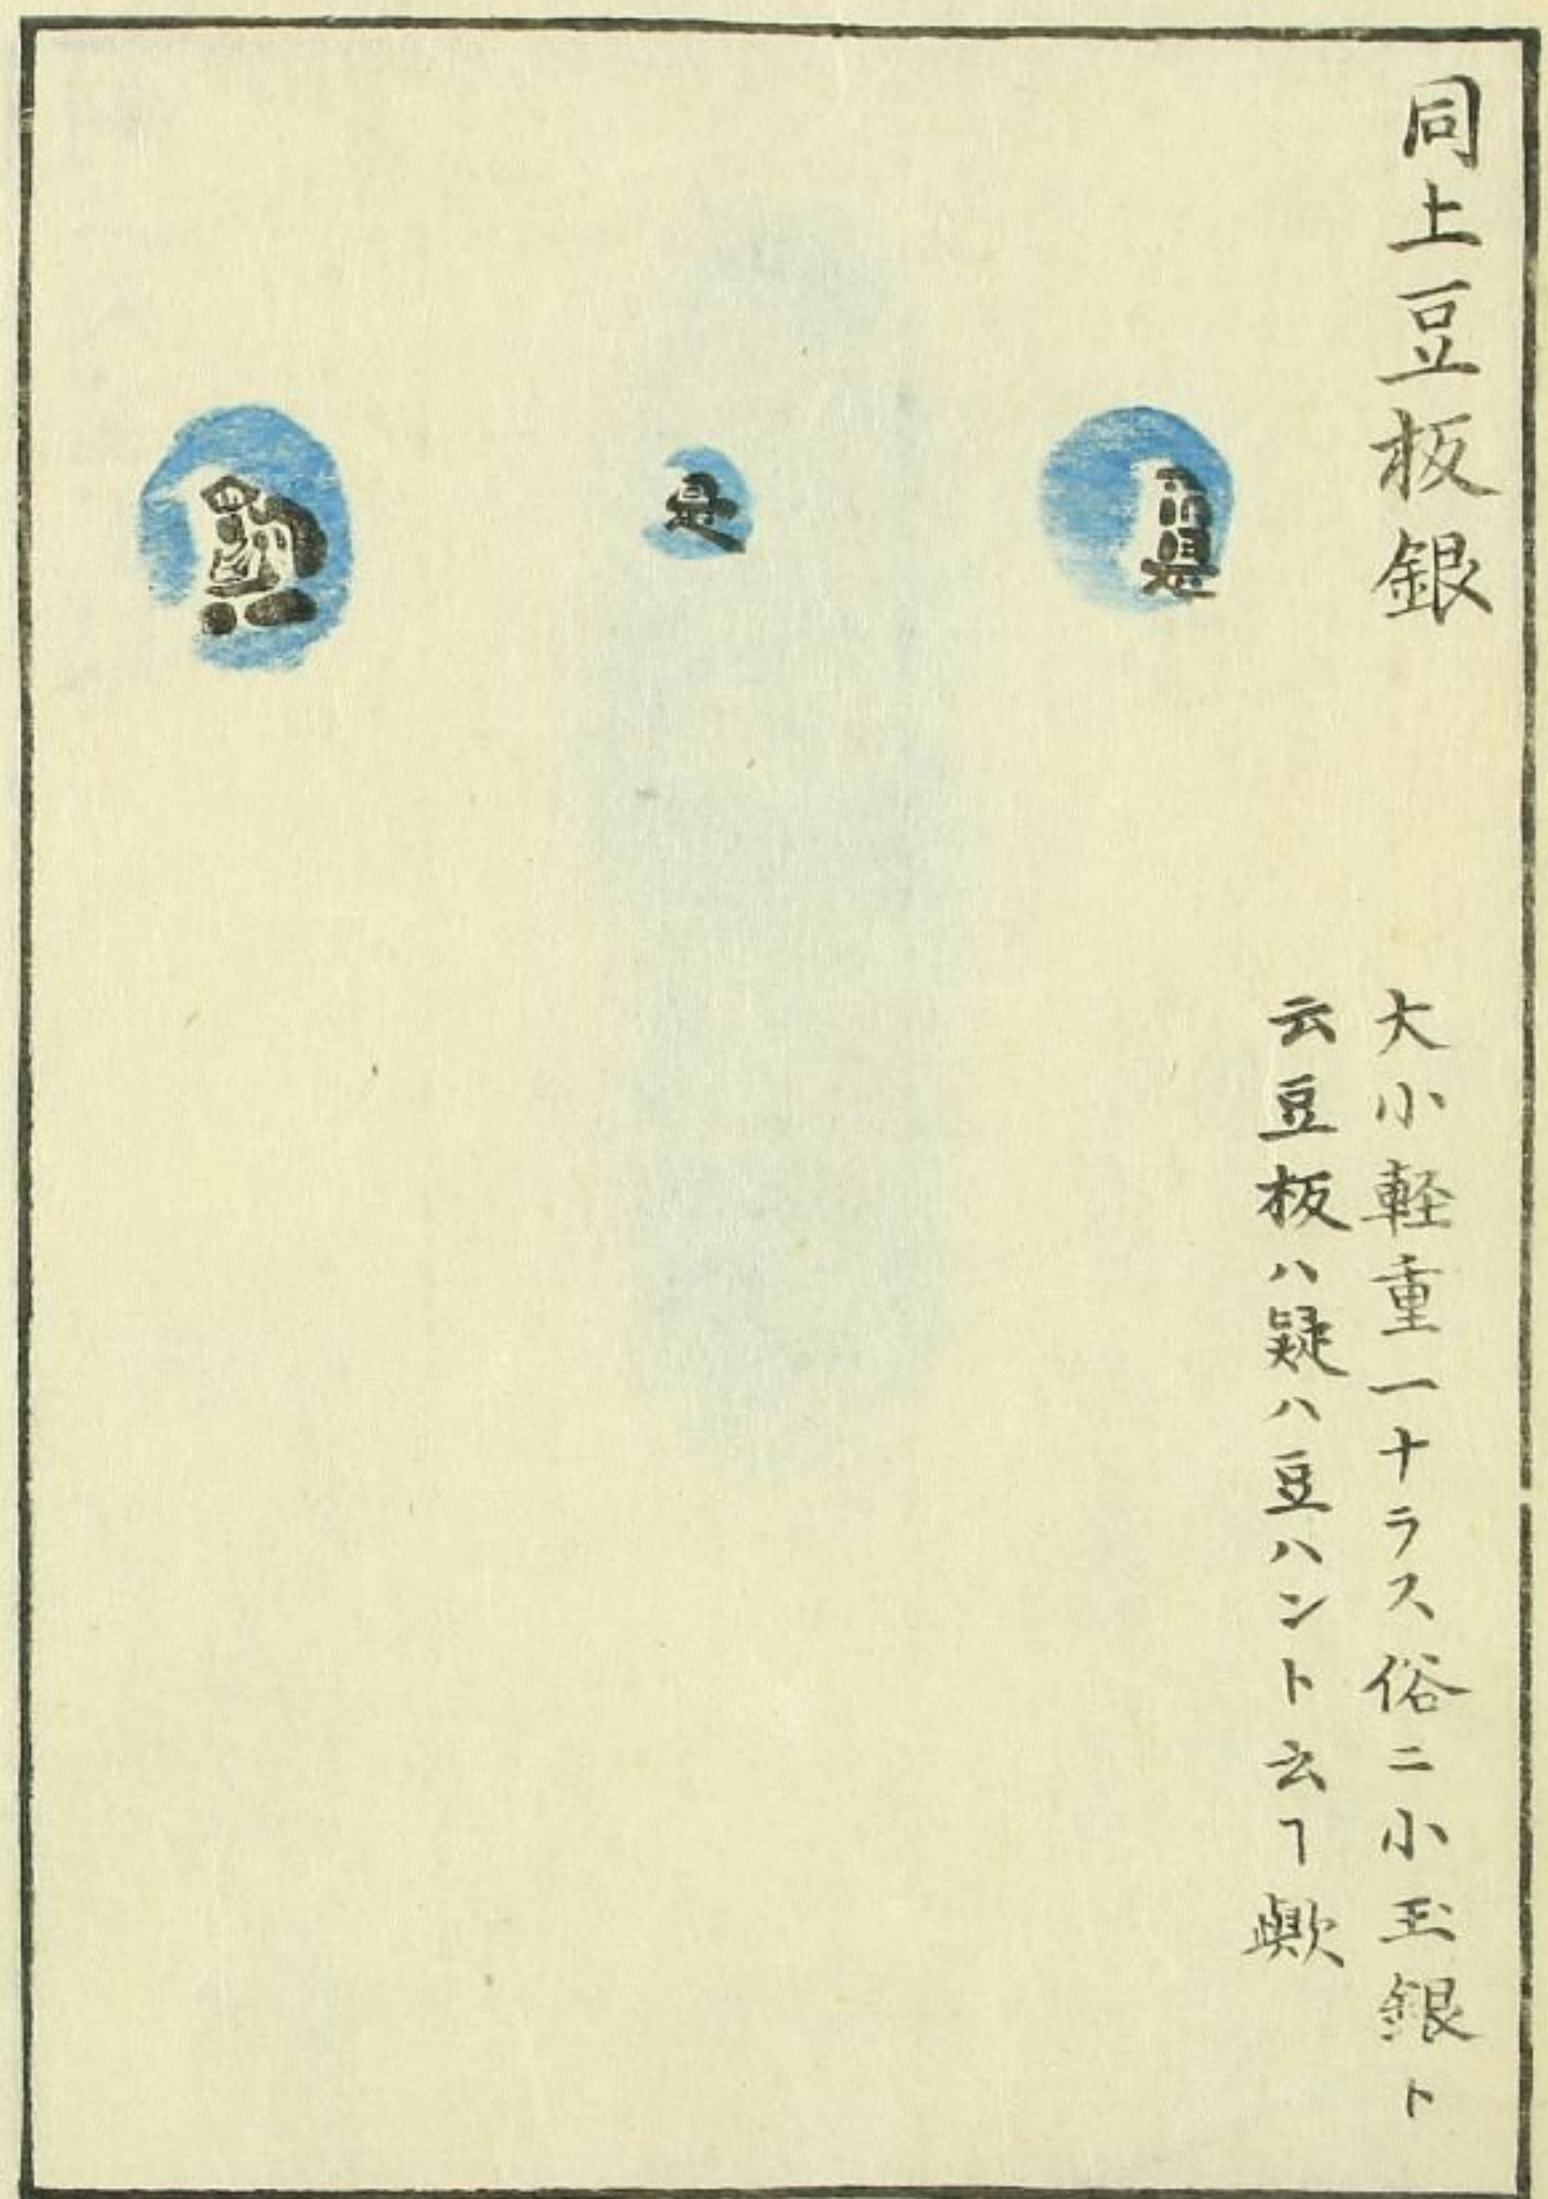 同上豆板銀
大小軽重一ナラス俗ニ小玉銀ト
云豆板ハ疑ハ豆ハント云ヿ歟
是